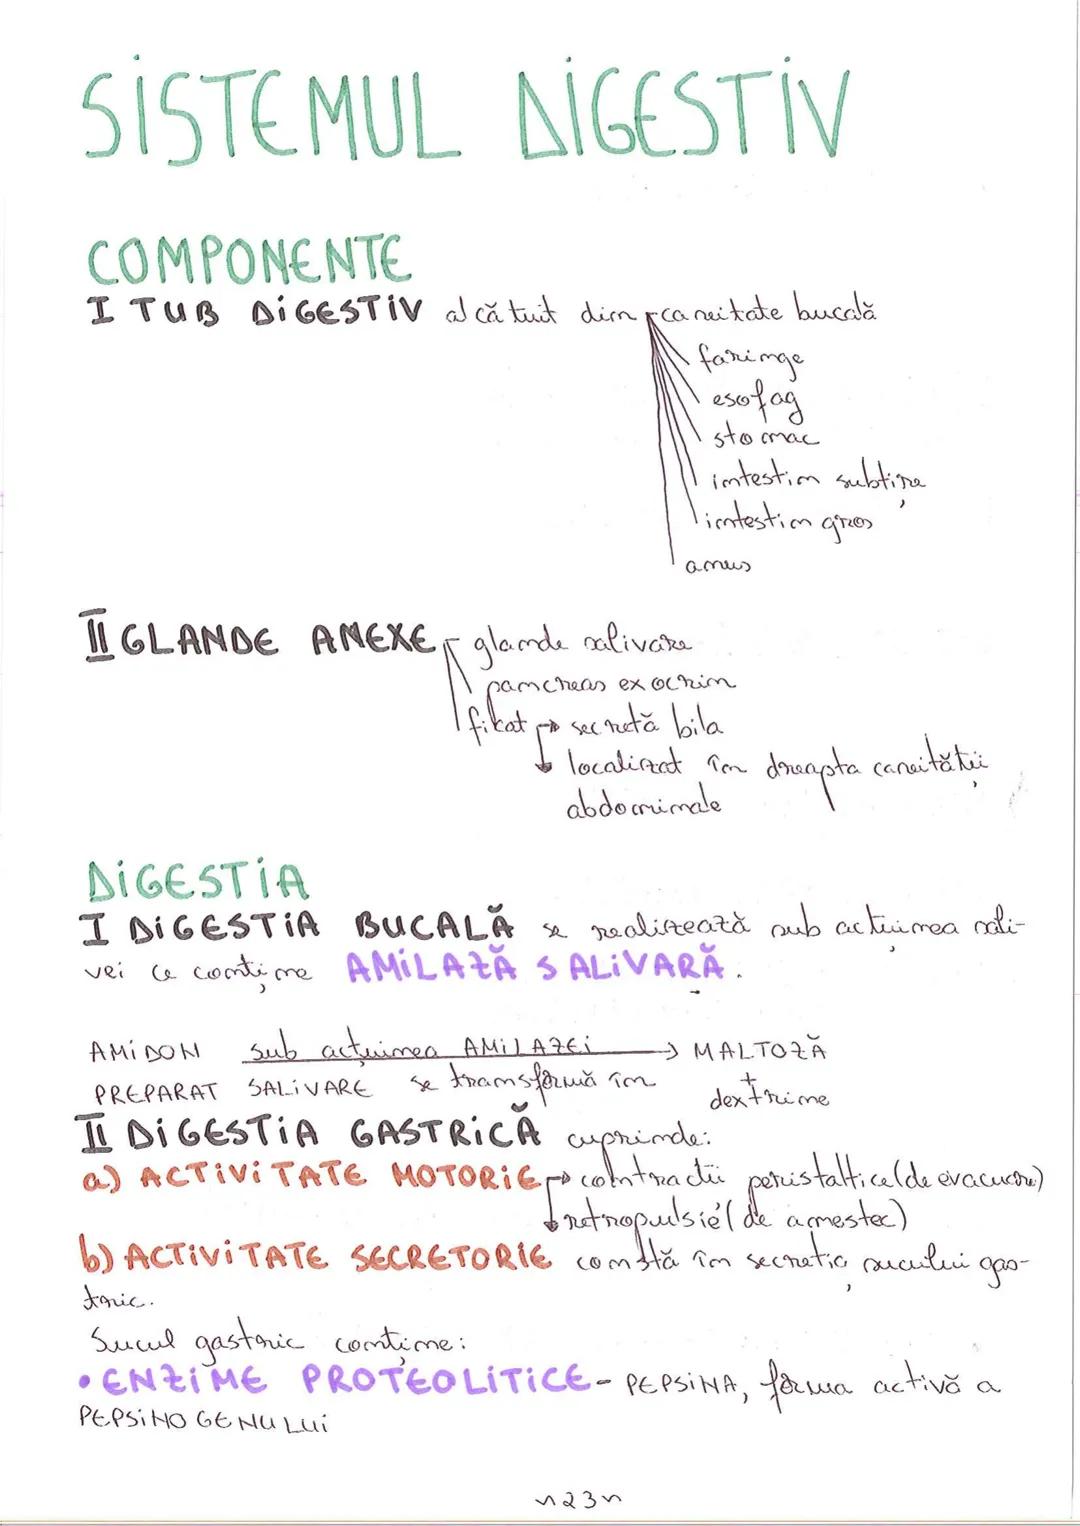 SISTEMUL DIGESTIV
COMPONENTE
I TUB DIGESTIV alcătuit din cavitate bucală
faringe
esofag
stomac
intestin subțire
intestin gros
anus
II GLANDE ANEXE glande salivare
pancreas exocrin
ficat → secretă bila
localizat în dreapta cavității
abdominale
DIGESTIA
I DIGESTIA BUCALĂ se realizează sub acțiunea sali-
vei ce conține AMILAZĂ SALIVARĂ.
AMIDON sub acțiunea AMILAZEI → MALTOZĂ
PREPARAT SALIVARE se transformă în + dextrine
II DIGESTIA GASTRICĂ cuprinde:
a) ACTIVITATE MOTORIE → contracții peristaltice (de evacuare)
retropulsie (de amestec)
b) ACTIVITATE SECRETORIE constă în secreția sucului gas-
tric.
Sucul gastric conține:
• ENZIME PROTEOLITICE - PEPSINA, forma activă a
PEPSINOGENULUI
~23~